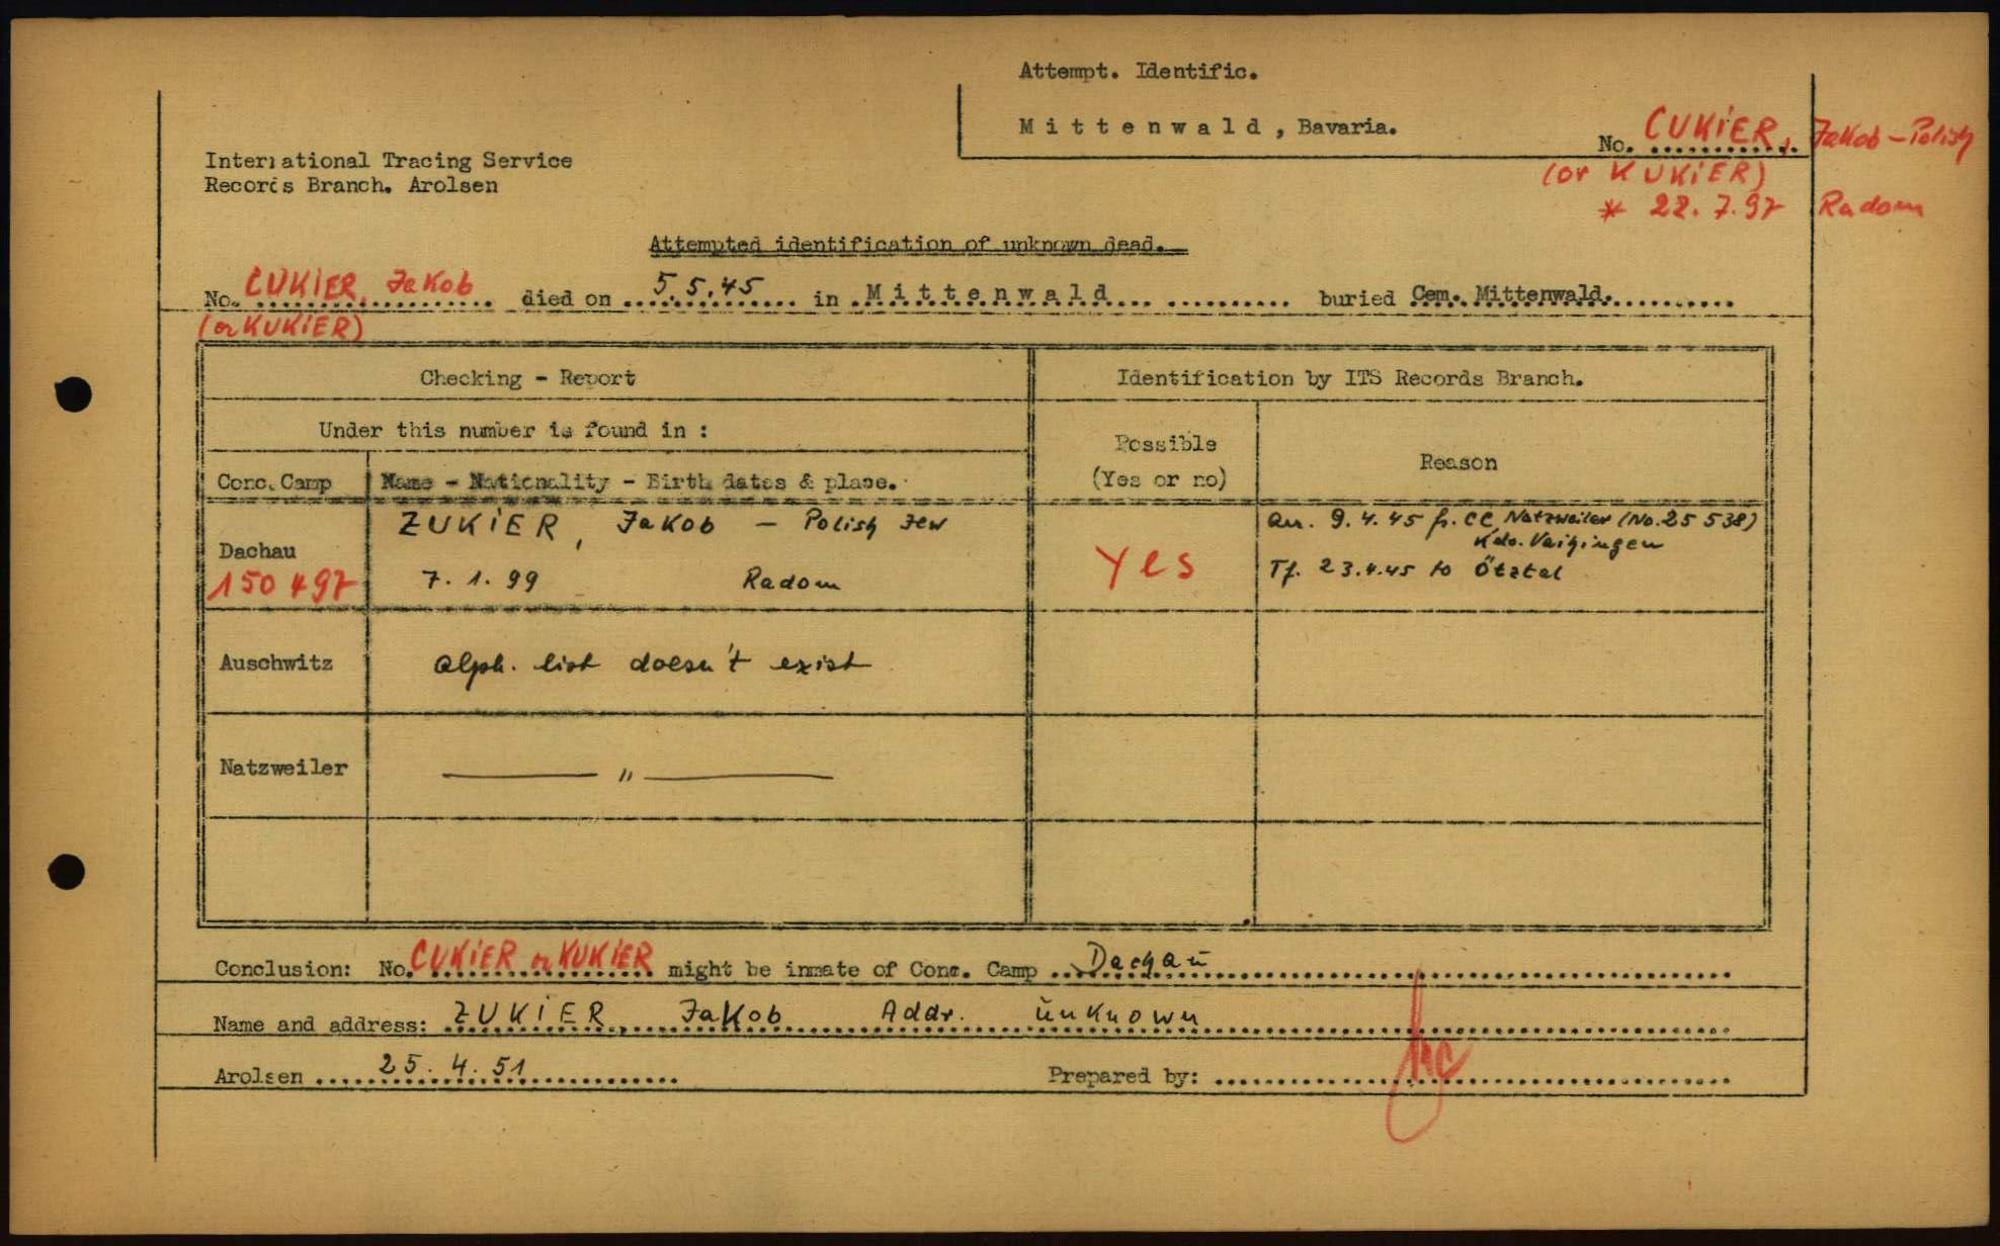 Attempt. Identific.
Mittenwald, Bavaria.
No. CUKIER, Jakob - Polish
(or KUKIER)
* 22. 7. 97 Radom
International Tracing Service
Records Branch. Arolsen
Attempted identification of unknown dead.
No. CUKIER, Jakob died on 5.5.45 in Mittenwald buried Cem. Mittenwald.
(or KUKIER)
Checking - Report
Identification by ITS Records Branch.
Under this number is found in :
Possible
(Yes or no)
Reason
Conc. Camp
Name - Nationality - Birth dates & place.
Dachau
150 497
ZUKIER, Jakob - Polish Jew
7. 1. 99 Radom
Yes
arr. 9.4.45 fr. CC Natzweiler (No. 25 538)
Kdo. Vaihingen
Tf. 23.4.45 to Ötztal
Auschwitz
alph. list doesn't exist
Natzweiler
— " —
Conclusion: No. CUKIER or KUKIER might be inmate of Conc. Camp Dachau
Name and address: ZUKIER, Jakob Addr. unknown
Arolsen 25. 4. 51
Prepared by: